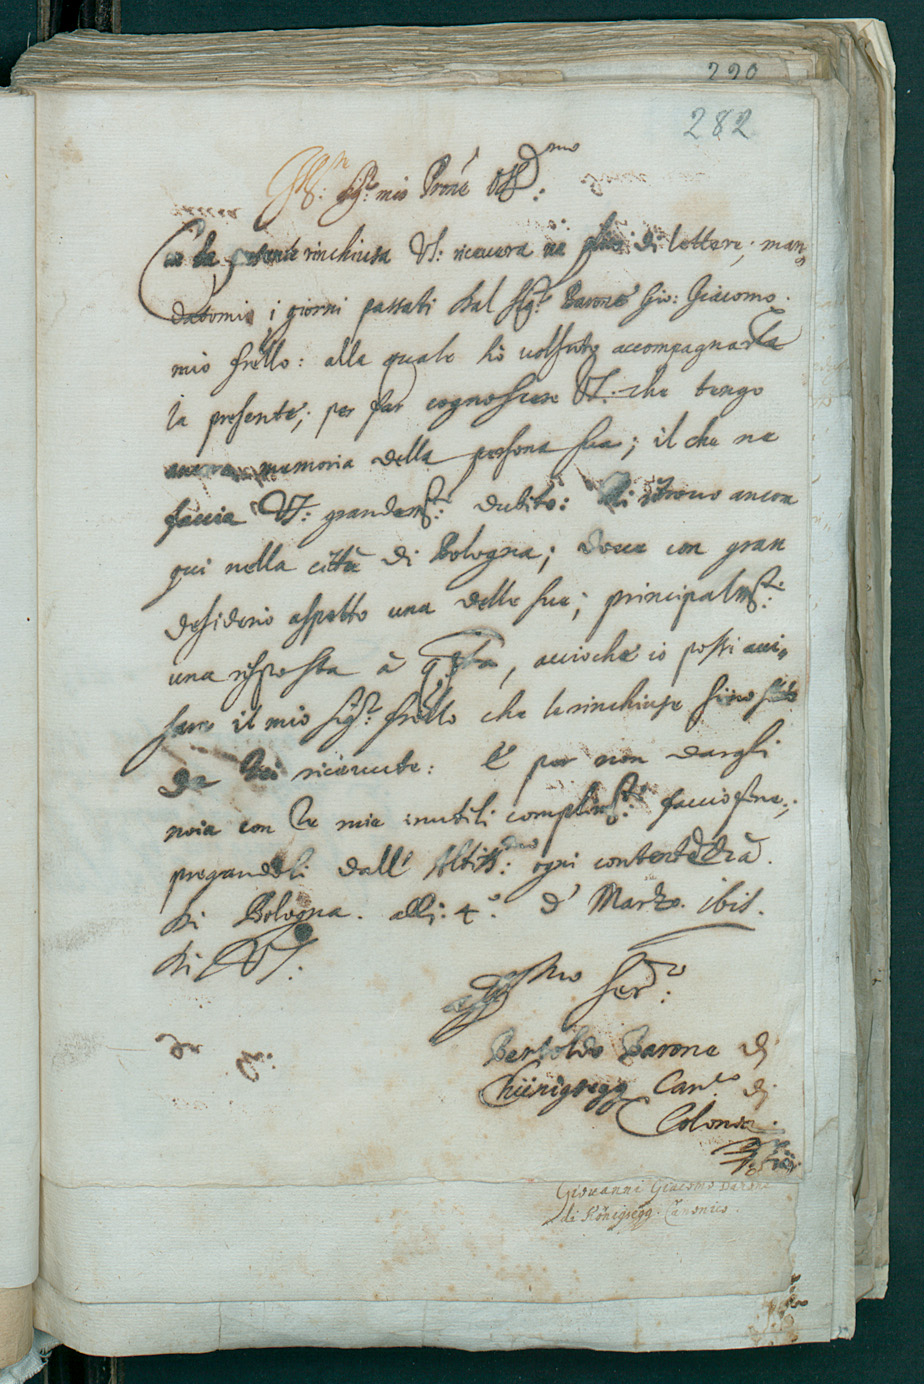 290
282
Ill: Sig:r mio Prone Oss:mo
Con la presente rinchiusa VS: riceverà un plico di lettere; man„
datomi i giorni passati dal Sig:r Barone Gio: Giacomo
mio frello: alla quale hò volsuto accompagnarla
la presente; per far cognoscere VS: che tengo
ancora memoria della persona sua; il che ne
faccia VS: grandemt: dubito: Mi ritrovo ancora
qui nella città di Bologna; dove con gran
desiderio aspetto una delle sue; principalmte:
una risposta à qsta, acciochè io possi avi„
sare il mio Sigr: frello che le rinchiuse sino state
da lei ricevute: E per non dargli
noia con le mie inutili complimti: faccio fine;
pregandoli dall' Altissmo: ogni contentezza.
Di Bologna. alli: 4.° d' Marzo. 1615.
Di VS:
Affmo Ser:o
Bertoldo Barone di
Küinigsegg Can:co di
Colonia.
Giovanni Giacomo Barone
di Königsegg Canonico.